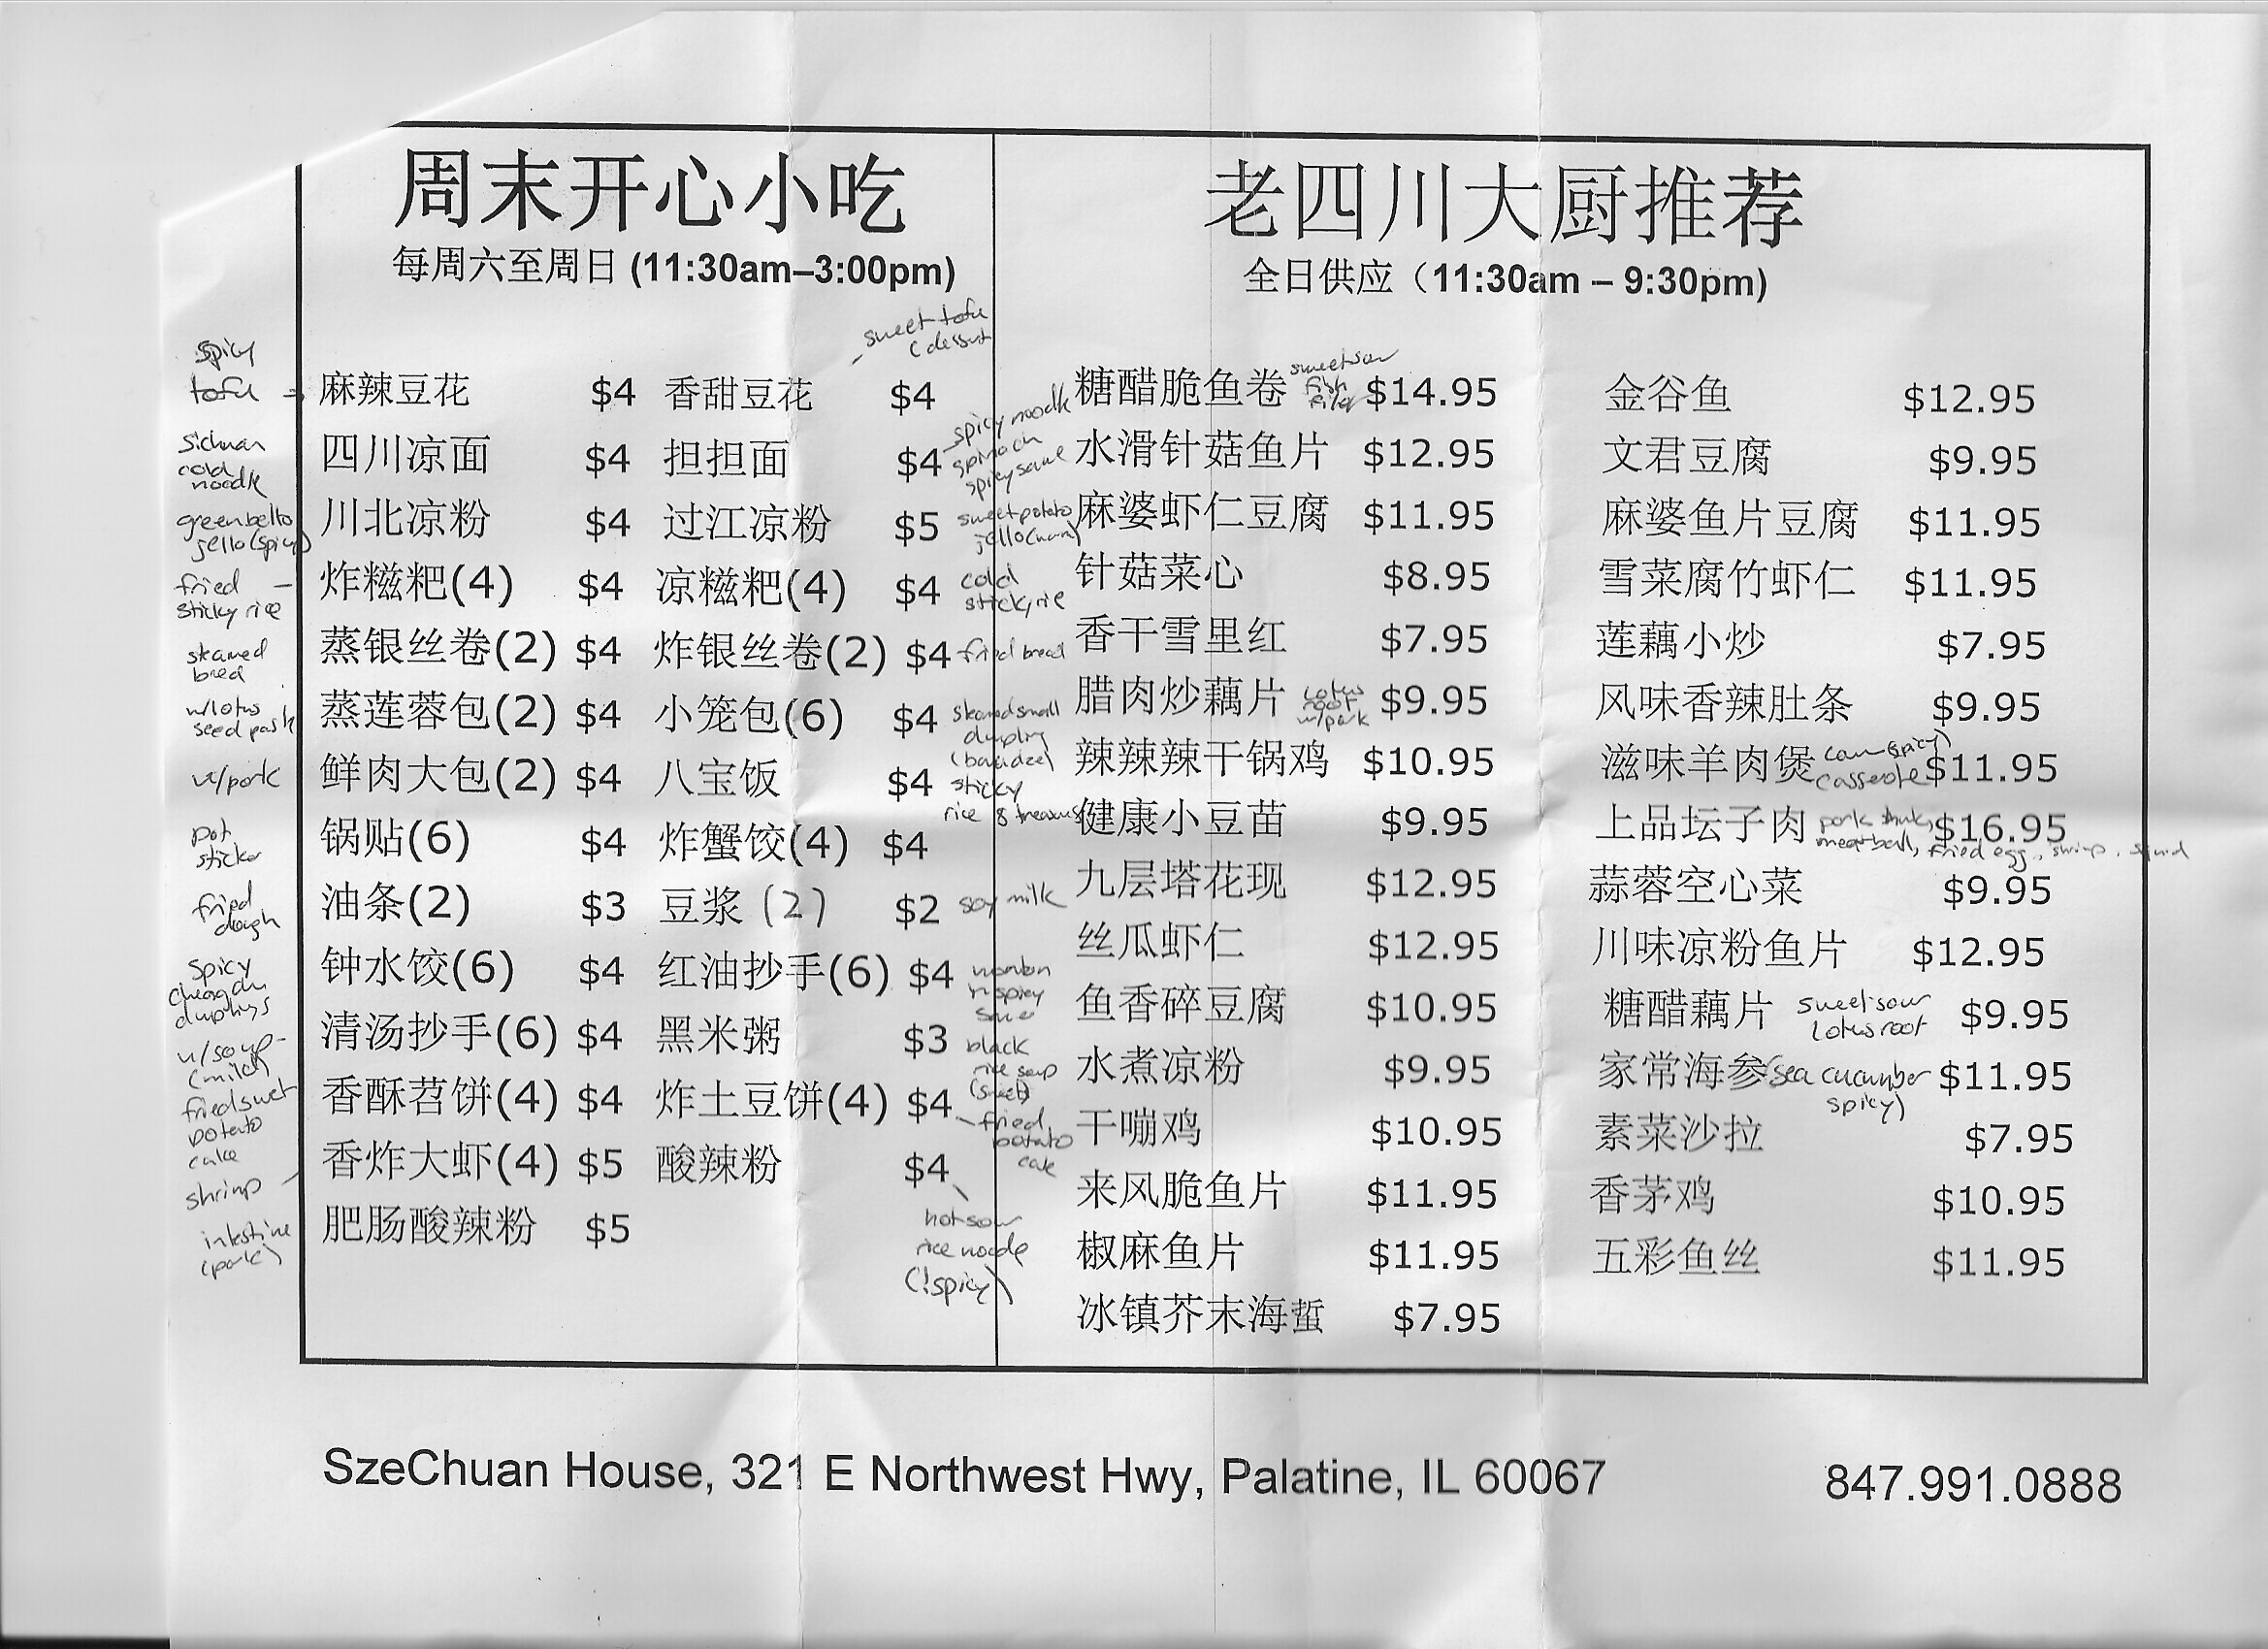 周末开心小吃
每周六至周日 (11:30am–3:00pm)
sweet tofu
(dessert
spicy
tofu
麻辣豆花 $4 香甜豆花 $4
sichuan
cold
noodle
四川凉面 $4 担担面 $4
spicy noodle
spinach
spicy sauce
green
jello (spicy)
川北凉粉 $4 过江凉粉 $5
sweet potato
jello (warm)
fried
sticky rice
炸糍粑(4) $4 凉糍粑(4) $4
cold
sticky rice
steamed
bread
蒸银丝卷(2) $4 炸银丝卷(2) $4 fried bread
w/lotus
seed paste
蒸莲蓉包(2) $4 小笼包(6) $4
steamed small
dumpling
w/pork
鲜肉大包(2) $4 八宝饭 $4
sticky
rice 8 treasures
pot
sticker
锅贴(6) $4 炸蟹饺(4) $4
fried
dough
油条(2) $3 豆浆 (2) $2 soy milk
spicy
Chengdu
dumplings
钟水饺(6) $4 红油抄手(6) $4
wonton
n spicy
sauce
w/soup
(mild)
清汤抄手(6) $4 黑米粥 $3
black
rice soup
(sweet)
fried sweet
potato
cake
香酥苕饼(4) $4 炸土豆饼(4) $4
fried
potato
cake
shrimp
香炸大虾(4) $5 酸辣粉 $4
hot sour
rice noodle
(!spicy)
intestine
(pork)
肥肠酸辣粉 $5
老四川大厨推荐
全日供应（11:30am – 9:30pm)
糖醋脆鱼卷 sweet sour fish $14.95 金谷鱼 $12.95
水滑针菇鱼片 $12.95 文君豆腐 $9.95
麻婆虾仁豆腐 $11.95 麻婆鱼片豆腐 $11.95
针菇菜心 $8.95 雪菜腐竹虾仁 $11.95
香干雪里红 $7.95 莲藕小炒 $7.95
腊肉炒藕片 lotus root w/pork $9.95 风味香辣肚条 $9.95
辣辣辣干锅鸡 $10.95 滋味羊肉煲 casserole $11.95
健康小豆苗 $9.95 上品坛子肉 pork $16.95
meatball, fried egg, shrimp, squid
九层塔花现 $12.95 蒜蓉空心菜 $9.95
丝瓜虾仁 $12.95 川味凉粉鱼片 $12.95
鱼香碎豆腐 $10.95 糖醋藕片 sweet sour lotus root $9.95
水煮凉粉 $9.95 家常海参 (sea cucumber spicy) $11.95
干嘣鸡 $10.95 素菜沙拉 $7.95
来风脆鱼片 $11.95 香茅鸡 $10.95
椒麻鱼片 $11.95 五彩鱼丝 $11.95
冰镇芥末海蜇 $7.95
SzeChuan House, 321 E Northwest Hwy, Palatine, IL 60067 847.991.0888